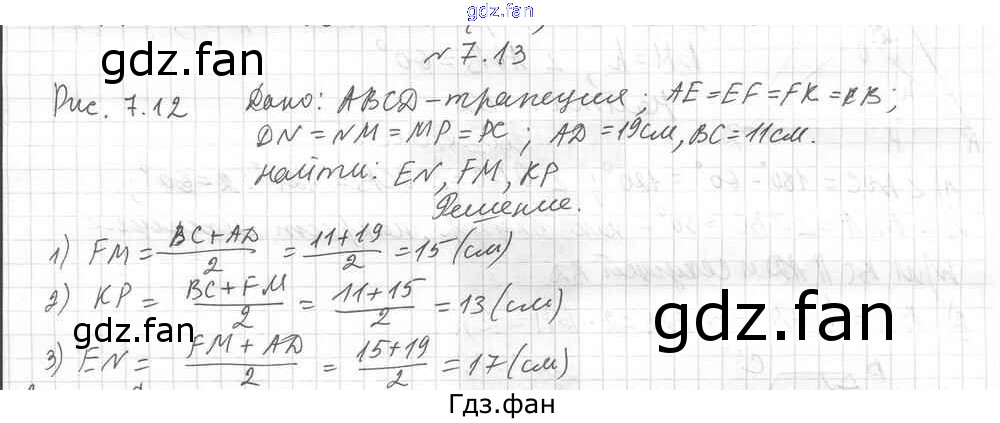 gdz.fan
№ 7.13
gdz.fan
Рис. 7.12 Дано: ABCD-трапеция; AE=EF=FK=KB;
DN=NM=MP=PC; AD=19см, BC=11см.
Найти: EN, FM, KP
Решение.
1) FM = (BC+AD)/2 = (11+19)/2 = 15 (см)
2) KP = (BC+FM)/2 = (11+15)/2 = 13 (см)
gdz.fan
gdz.fan
3) EN = (FM+AD)/2 = (15+19)/2 = 17 (см)
Гдз.фан